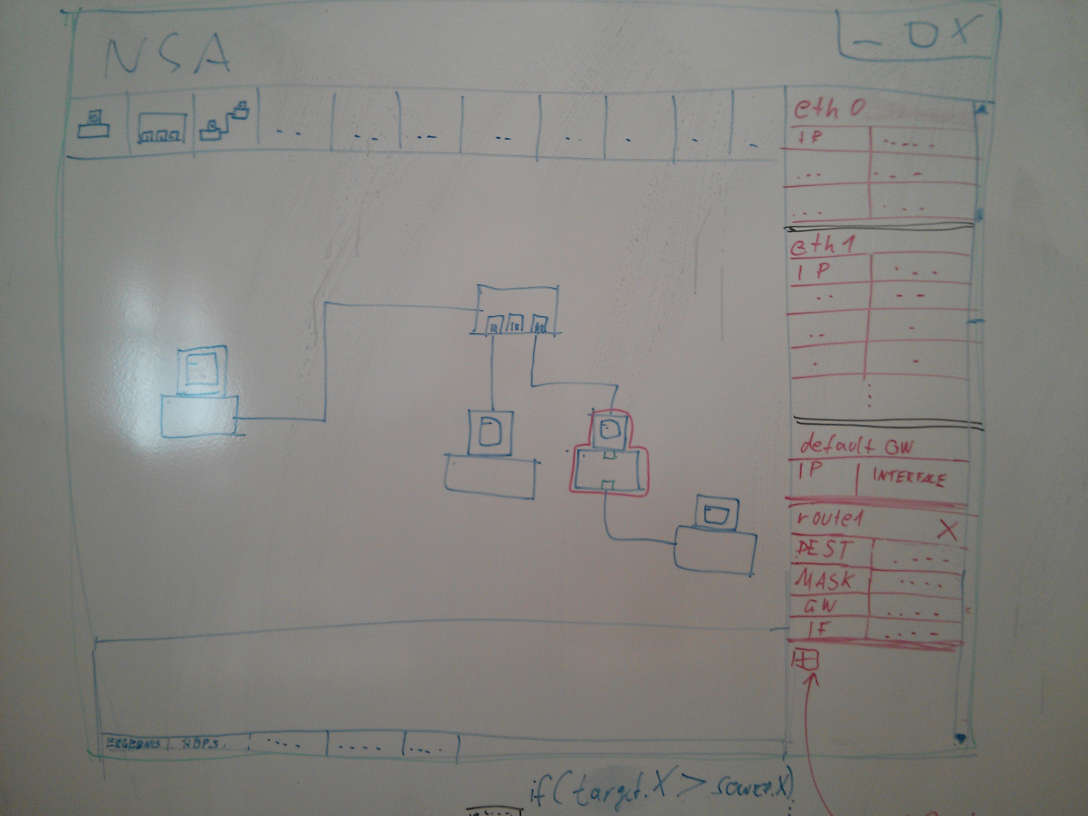 NSA
_ O X
eth 0
IP
eth1
IP
default GW
IP INTERFACE
route1 X
DEST
MASK
GW
IF
ERGEBNIS HOPS
if(target.X > source.X)